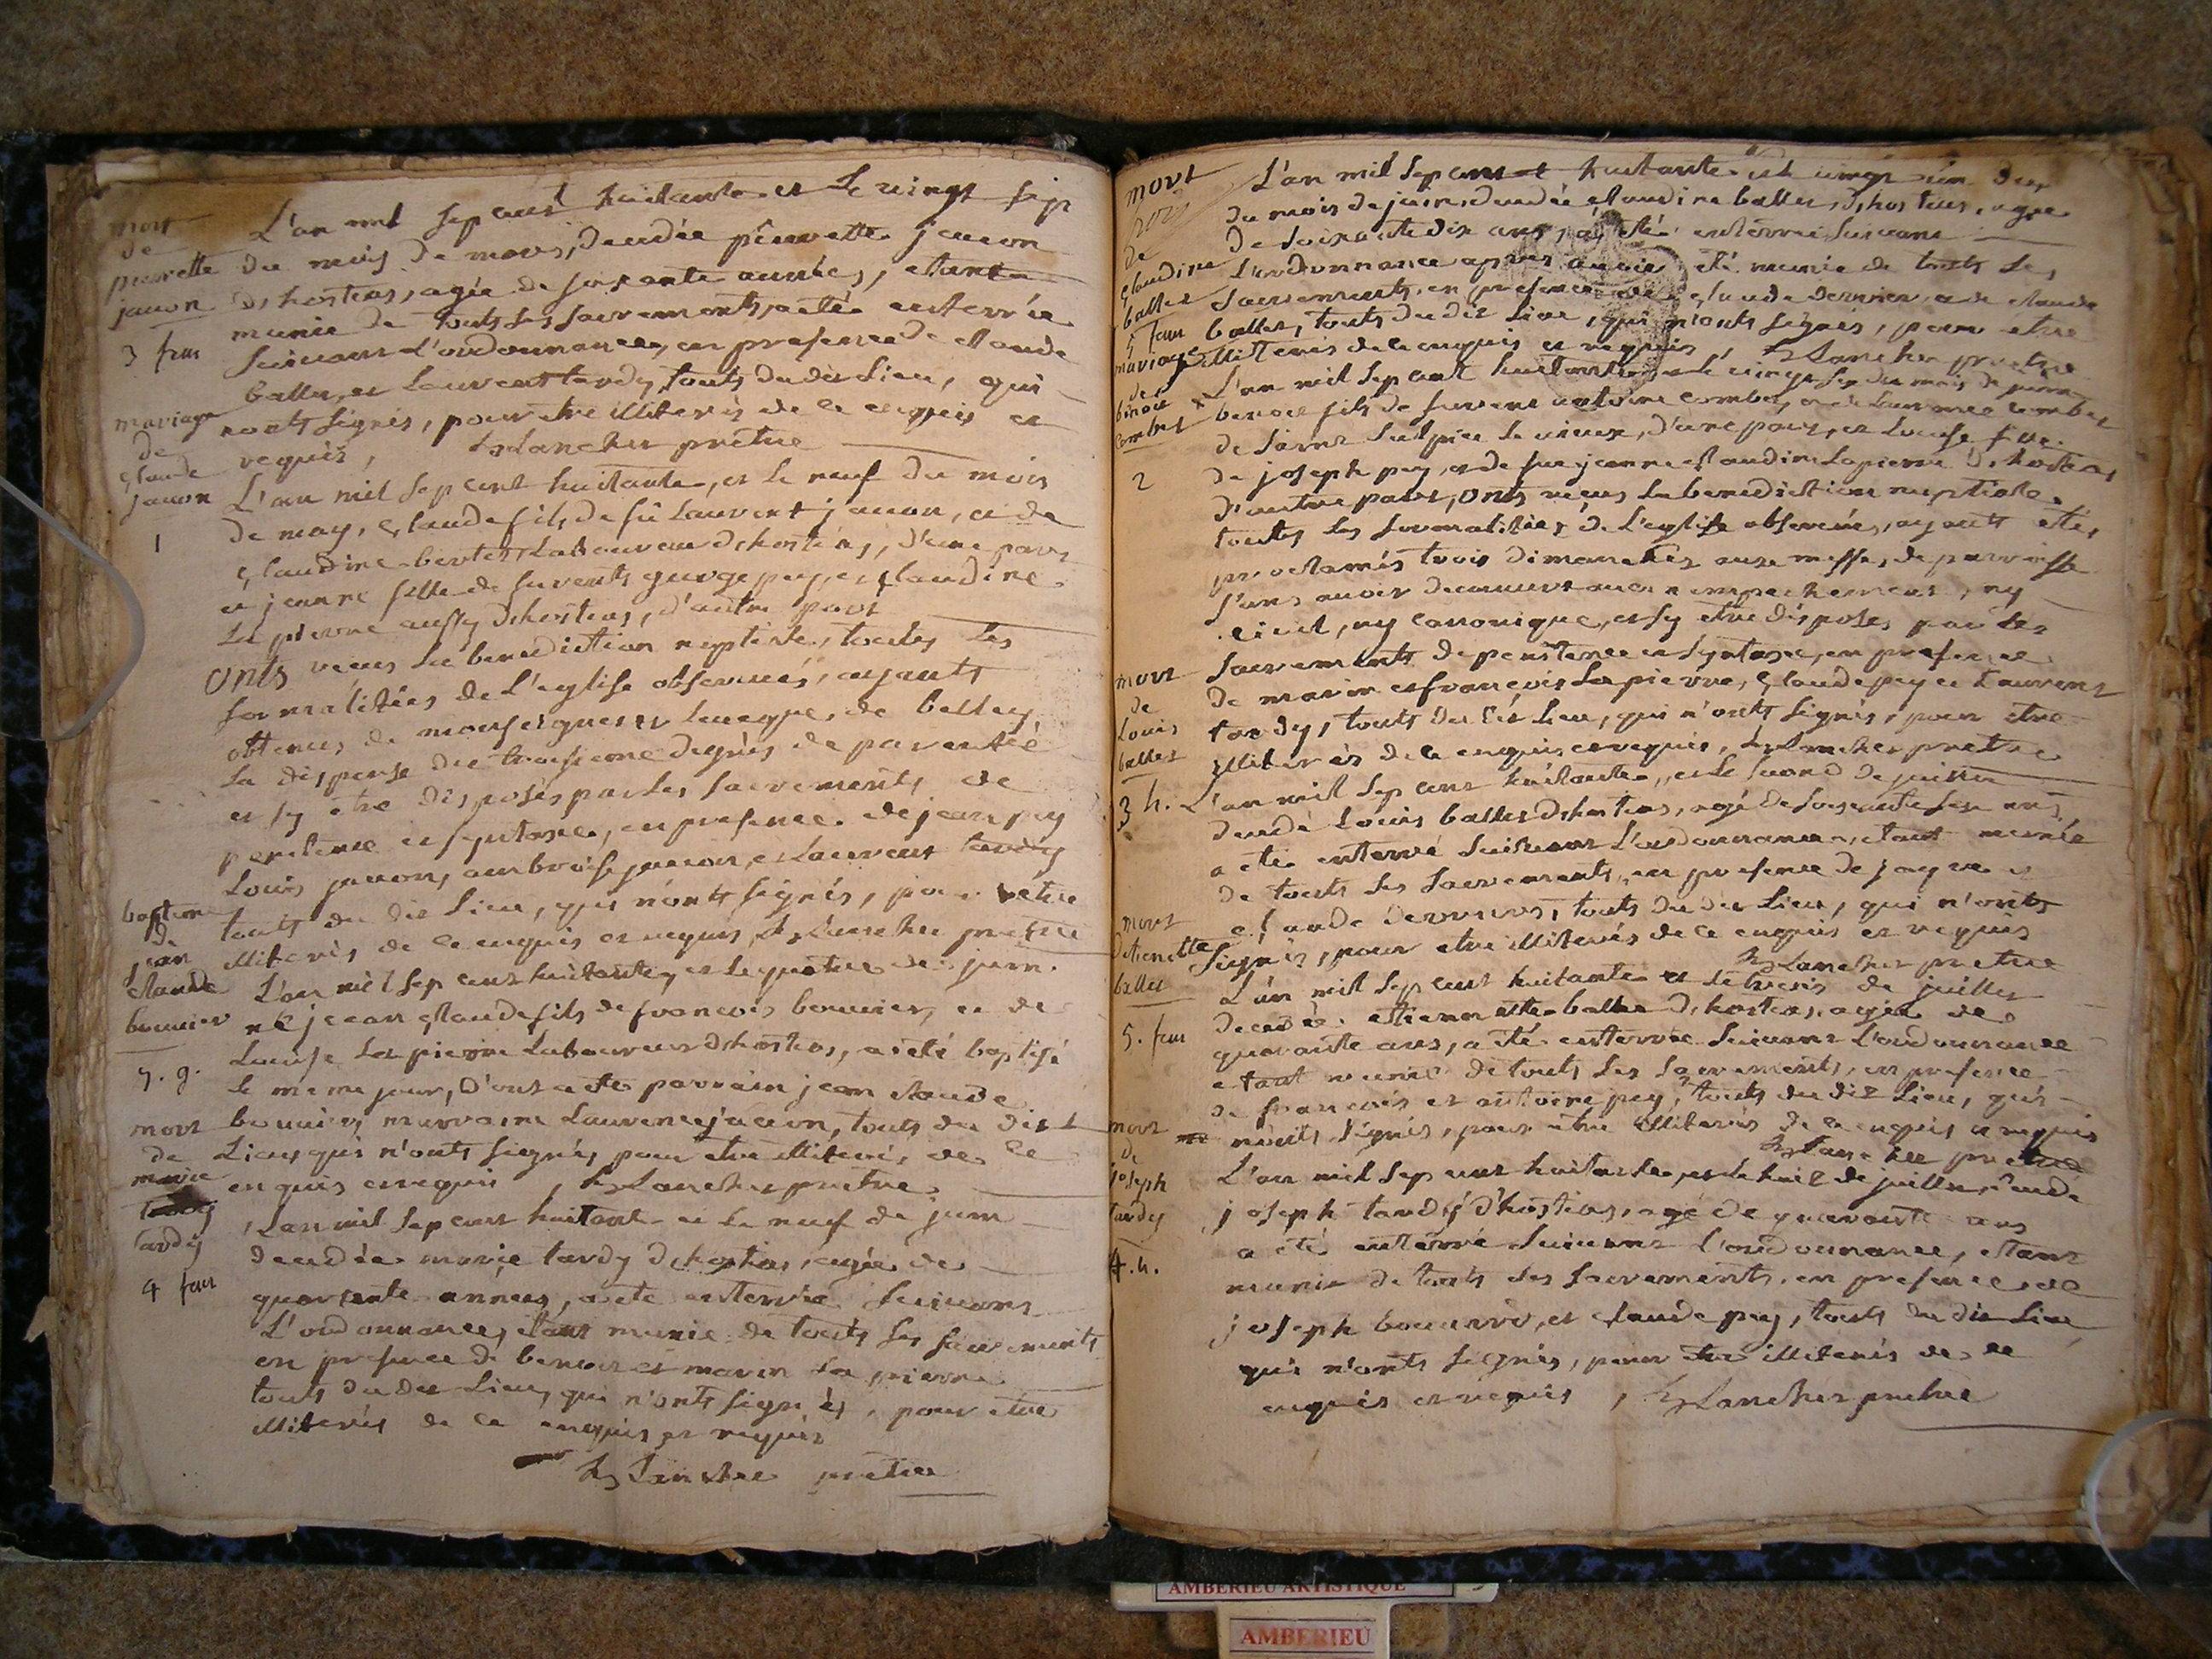 mort
de
pierrette
janon
3 fem
L'an mil sept cent huitante et le vingt sep
du mois de mars, decedée pierrette janon
d'hostias, agée de soixante années, etant
munie de touts les sacrements, a eté enterrée
suivant l'ordonnance, en presence de claude
ballet, et laurent tardy, touts du dit lieu, qui
n'onts signés, pour etre illiterés de ce enquis et
requis, Lancher prêtre
mariage
de
claude
janon
1
L'an mil sep cent huitante, et le neuf du mois
de may, claude fils de fû laurent janon, et de
claudine bertet, laboureur d'hostias, d'une part
et jeanne fille de furents george pey, et claudine
la pierre aussy d'hostias, d'autre part
onts reçus la benediction nuptiale, toutes les
formalitées de l'eglise observées, ayants
obtenus de monseigneur leveque de belley
la dispense du troisieme degrés de parentée
et sy etre disposés par les sacrements de
penitence et syntaxe, en presence de jean pey
Louis janon, ambroise janon, et laurent tardy
touts du dit lieu, qui n'onts signés, pour etre
illiterés de ce enquis et requis, Lancher pretre
bapteme
de
jean
claude
bouvier
5. g.
L'an mil sep cent huitante, et le quatre de juin
né jean claude fils de francois bouvier, et de
Louise la pierre laboureur d'hostias, a eté baptisé
le meme jour, d'ont a eté parrain jean claude
bouvier, marraine laurence janon, touts du dit
Lieu, qui n'onts signés, pour etre illiterés de ce
enquis et requis, Lancher pretre
mort
de
marie
tardy
4 fem
L'an mil sep cent huitante et le neuf de juin
decedée marie tardy d'hostias, agée de
quarante années, a eté enterrée suivant
L'ordonnance, etant munie de touts les sacrements
en presence de benoit et marin la pierre
touts du dit lieu, qui n'onts signés, pour etre
illiterés de ce enquis et requis
Lancher pretre
mort
de
claudine
ballet
5 fem
L'an mil sep cent huitante et le vingt un
du mois de juin, decedée claudine ballet, d'hostias, agée
de soixante dix ans, a eté enterrée suivant
L'ordonnance apres avoir eté munie de touts les
sacrements, en presence de claude dernier, et de claude
ballet, touts du dit lieu, qui n'onts signés, pour etre
illiterés de ce enquis et requis, Lancher pretre
mariage
de
benoit
combet
2
L'an mil sep cent huitante, et le vingt sep du mois de juin
benoit fils de furent antoine combet, et de laurence combet
de saint sulpice le vieux, d'une part, et louise fille
de joseph pey, et de fue jeanne claudine lapierre d'hostias,
d'autre part, onts reçus la benediction nuptiale.
toutes les formalitées de l'eglise observées, ayants etés
proclamés trois dimanches aux messes, de parroisse
sans avoir decouvert aucun empechement, ny
civil, ny canonique, et sy etre disposés par les
sacrements de penitence et syntaxe, en presence
de marin et françois lapierre, claude pey et laurent
tardy, touts du dit lieu, qui n'onts signés, pour etre
illiterés de ce enquis et requis, Lancher pretre
mort
de
Louis
ballet
3 h.
L'an mil sep cent huitante, et le second de juillet
decedé Louis ballet d'hostias, agé de soixante ans
a eté enterré suivant l'ordonnance, etant munie
de touts les sacrements, en presence de
claude, touts du dit lieu, qui n'onts
signés, pour etre illiterés de ce enquis et requis
Lancher pretre
mort
d'etiennette
ballet
5. fem
L'an mil sep cent huitante et le trois de juillet
decedée etiennette ballet d'hostias, agée de
quarante ans, a eté enterrée suivant l'ordonnance
etant munie de touts les sacrements, en presence
de francois et antoine pey, touts du dit lieu, qui
n'onts signés, pour etre illiterés de ce enquis et requis
Lancher pretre
mort
de
joseph
tardy
4. h.
L'an mil sep cent huitante, et le huit de juillet, decedé
joseph tardy d'hostias, agé de quarante ans
a eté enterré suivant l'ordonnance, etant
munie de touts les sacrements, en presence de
joseph, et claude pey, touts du dit lieu
qui n'onts signés, pour etre illiterés de ce
enquis et requis, Lancher pretre
AMBERIEU ARTISTIQUE
AMBERIEU